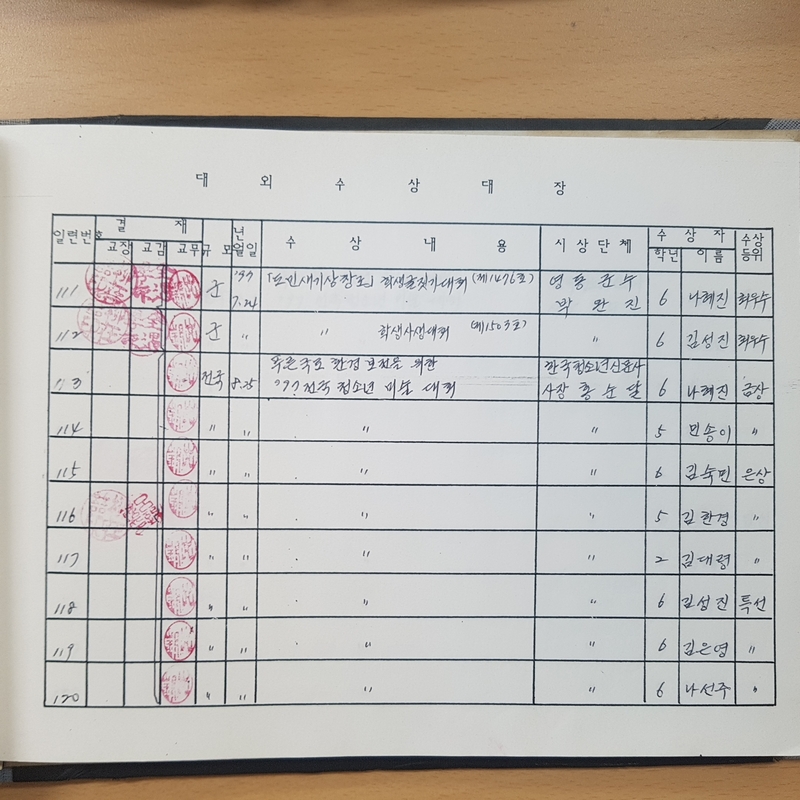 대 외 수 상 대 장
일련번호 결 재 규 모 년월일 수 상 내 용 시 상 단 체 수 상 자 수상등위
교장 교감 교무 학년 이 름
111 군 '97 7.24 「도민새기상창조」 학생글짓기대회 (제1476호) 영광군수 박 완 진 6 나혜진 최우수
112 군 〃 〃 학생사생대회 (제1503호) 〃 6 김성진 최우수
113 전국 8.25 푸른국토 환경보전을 위한 한국청소년신문사
'97 전국 청소년 미술 대회 사장 홍 순 달 6 나혜진 금상
114 〃 〃 〃 〃 5 민송이 〃
115 〃 〃 〃 〃 6 김숙민 은상
116 〃 〃 〃 〃 5 김한경 〃
117 〃 〃 〃 〃 2 김대령 〃
118 〃 〃 〃 〃 6 김성진 특선
119 〃 〃 〃 〃 6 김은영 〃
120 〃 〃 〃 〃 6 나선주 〃